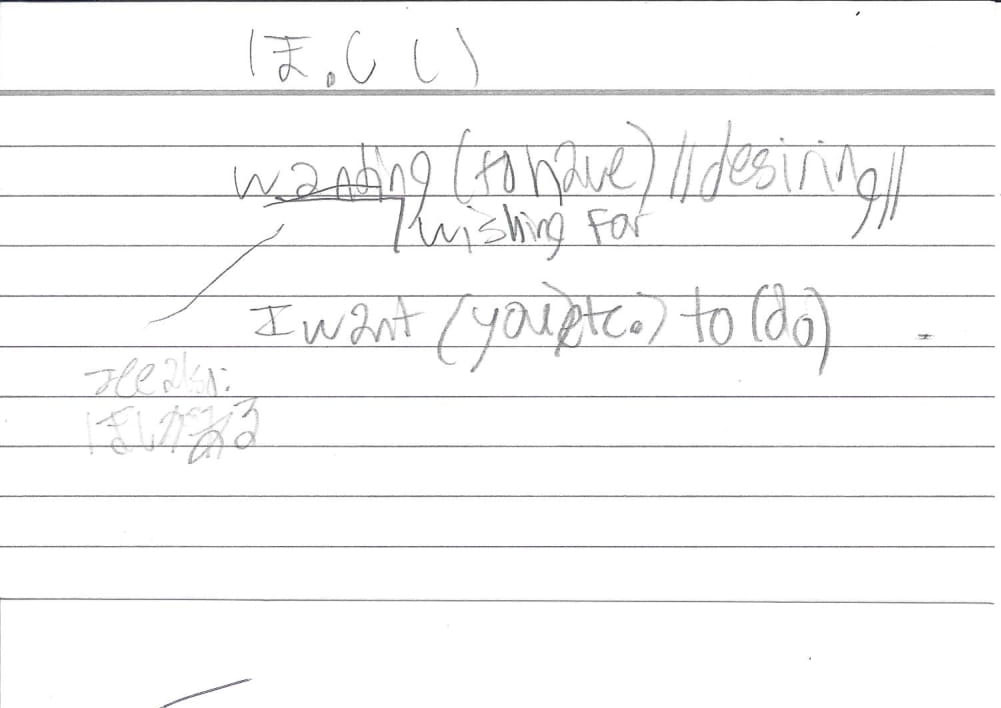 ほ.しい
wanting (to have) // desiring //
wishing for
I want (you, etc.) to (do)
see also:
ほしがる